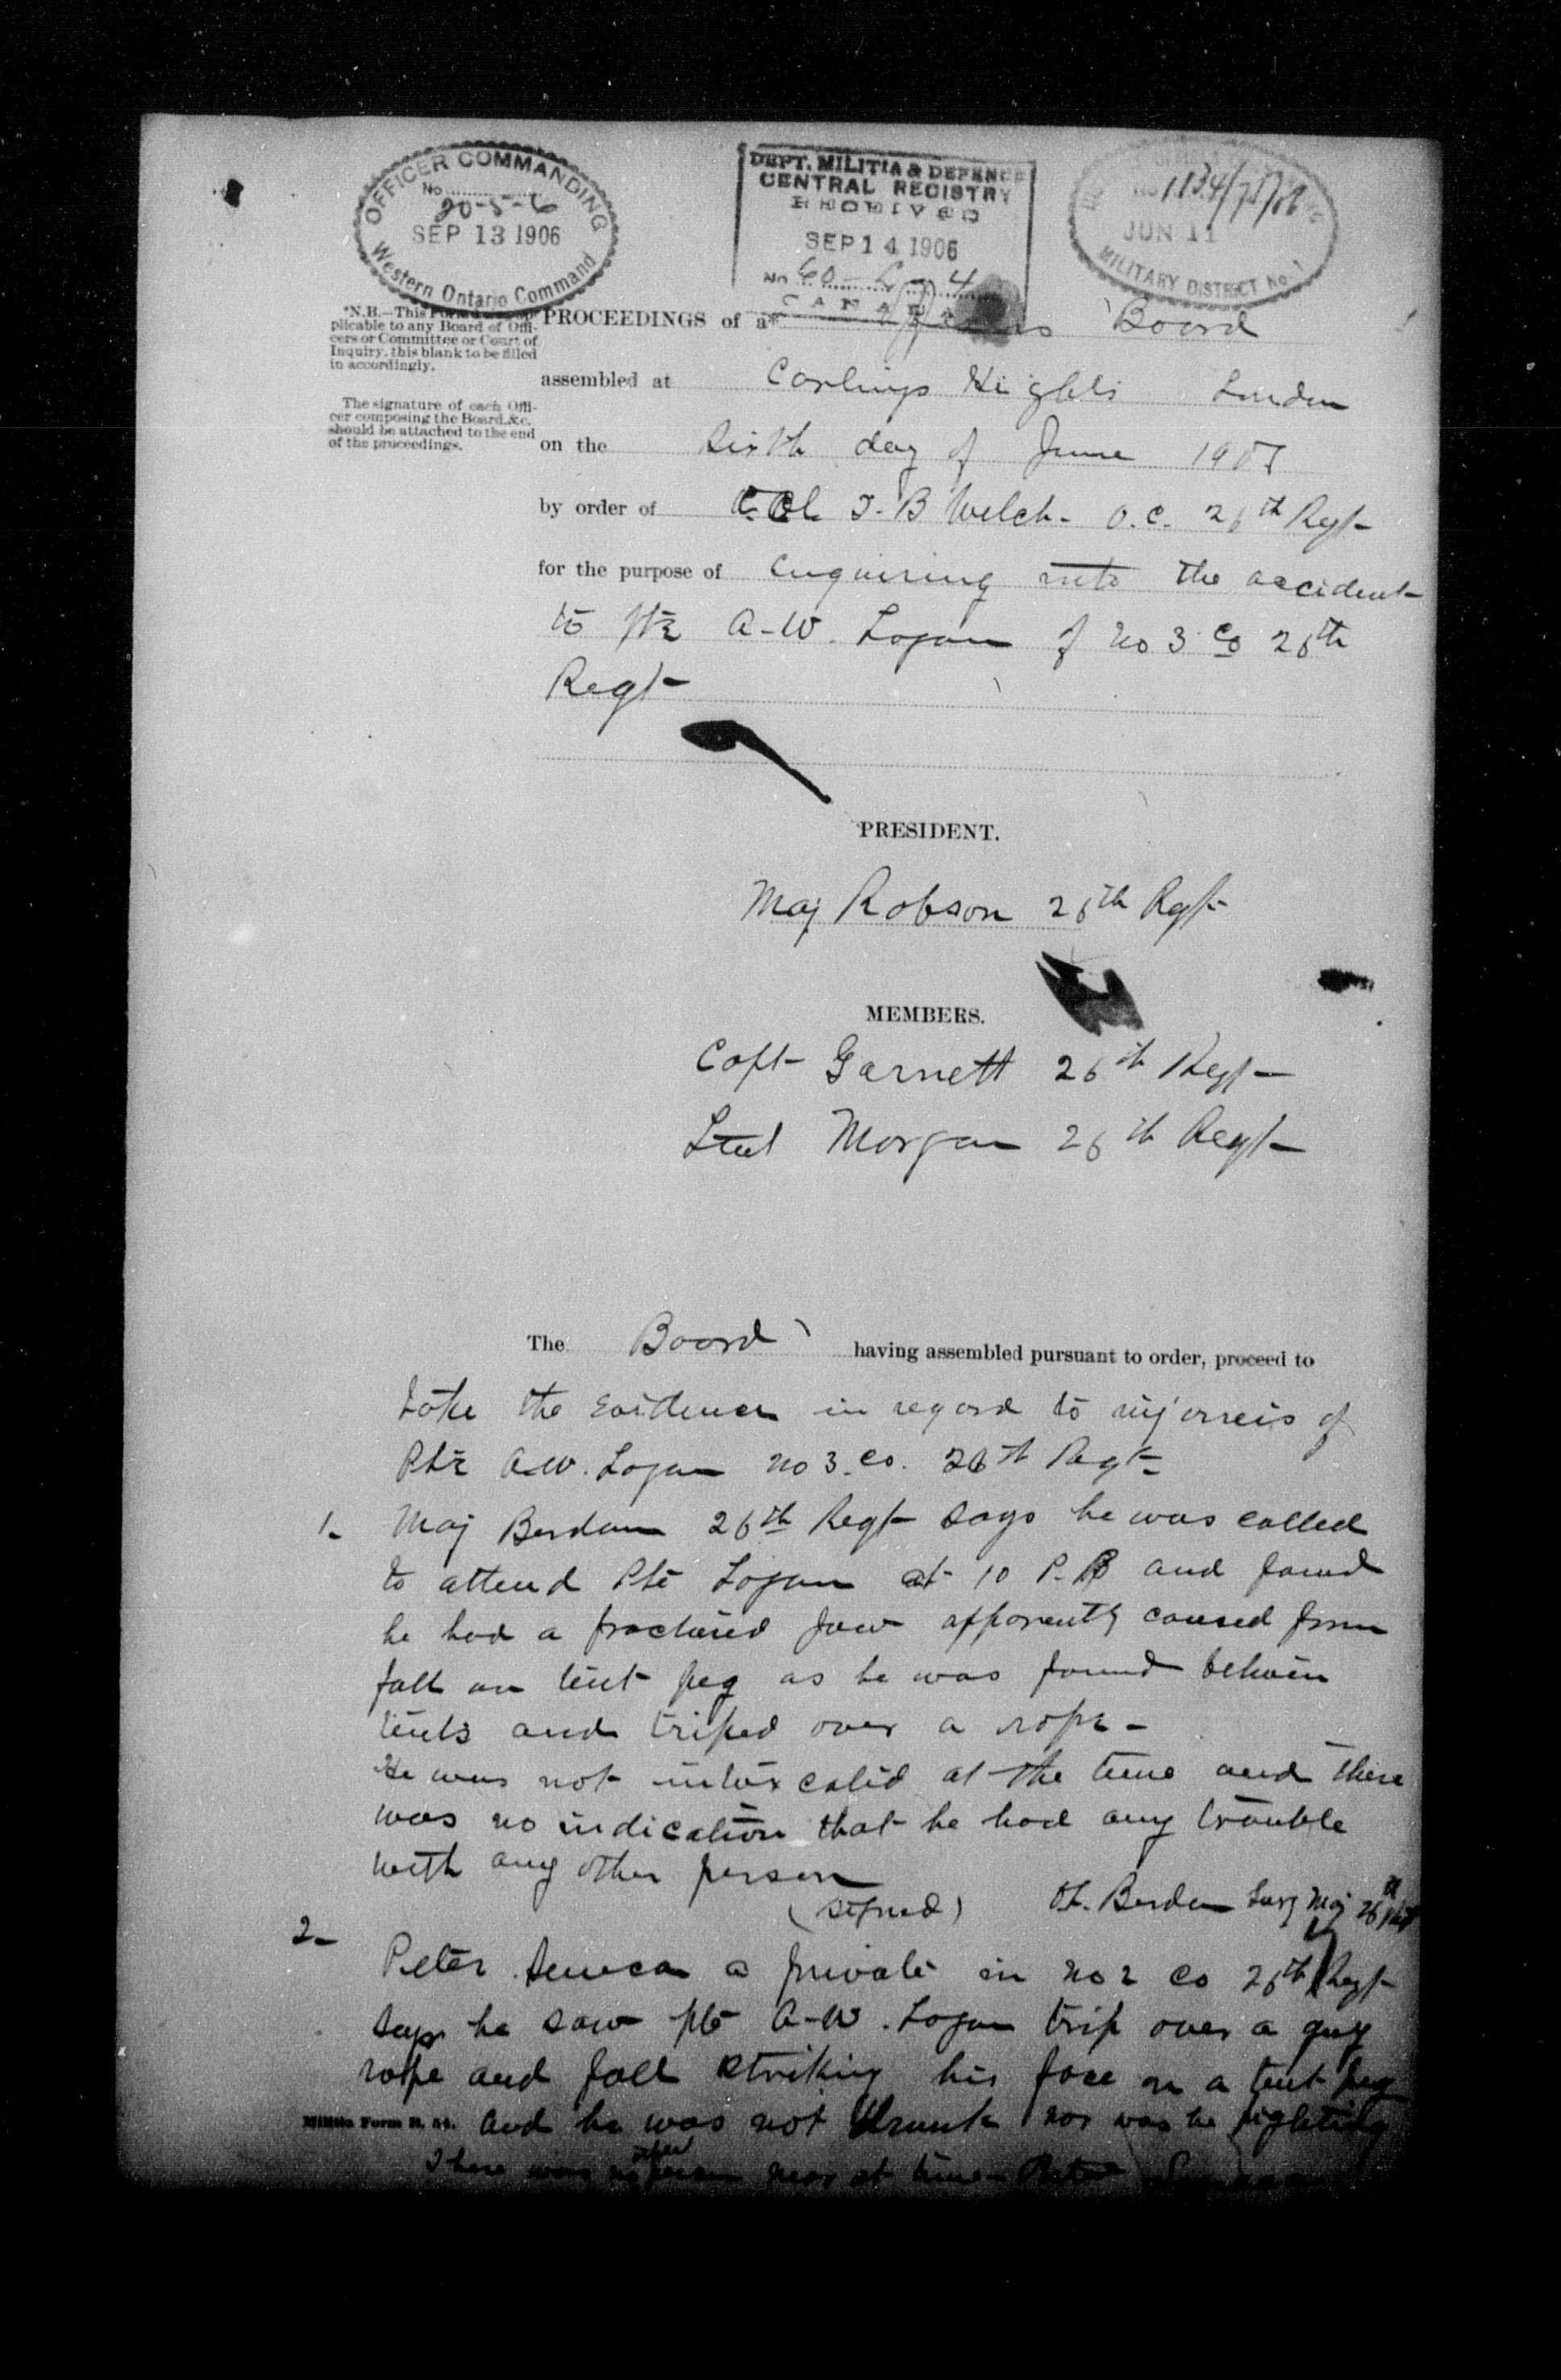 OFFICER COMMANDING
No
20-5-6
SEP 13 1906
Western Ontario Command
DEPT. MILITIA & DEFENCE
CENTRAL REGISTRY
RECEIVED
SEP 14 1906
No 60-
CANADA
JUN 11
MILITARY DISTRICT No 1
*N.B.—This Form
plicable to any Board of Offi-
cers or Committee or Court of
Inquiry, this blank to be filled
in accordingly.
The signature of each Offi-
cer composing the Board, &c.
should be attached to the end
of the proceedings.
PROCEEDINGS of a* Board
assembled at Carlings Heights London
on the Sixth day of June 190
by order of Col Welch - O.C. 26th Regt
for the purpose of enquiring into the accident
to Pte A-W. Logan of No 3 Co 26th
Regt
PRESIDENT.
Maj Robson 26th Regt
MEMBERS.
Capt Garnett 26th Regt
Lieut Morgan 26th Regt
The Board having assembled pursuant to order, proceed to
take the Evidence in regard to injureis of
Pte A.W. Logan No 3. Co. 26th Regt
1- Maj Berdan 26th Regt says he was called
to attend Pte Logan at 10 P. and found
he had a fractured jaw apparently caused from
fall on tent peg as he was found between
tents and triped over a rope -
He was not intoxcated at the time and there
was no indication that he had any trouble
with any other person
(signed) Berdan Surg Maj 26th Regt
2- Peter Seneca a private in No 2 Co 26th Regt
says he saw pte A-W. Logan trip over a guy
rope and fall striking his face on a tent peg
Militia Form B. and he was not drunk nor was he fighting
There was no other person near at time - Peter Seneca